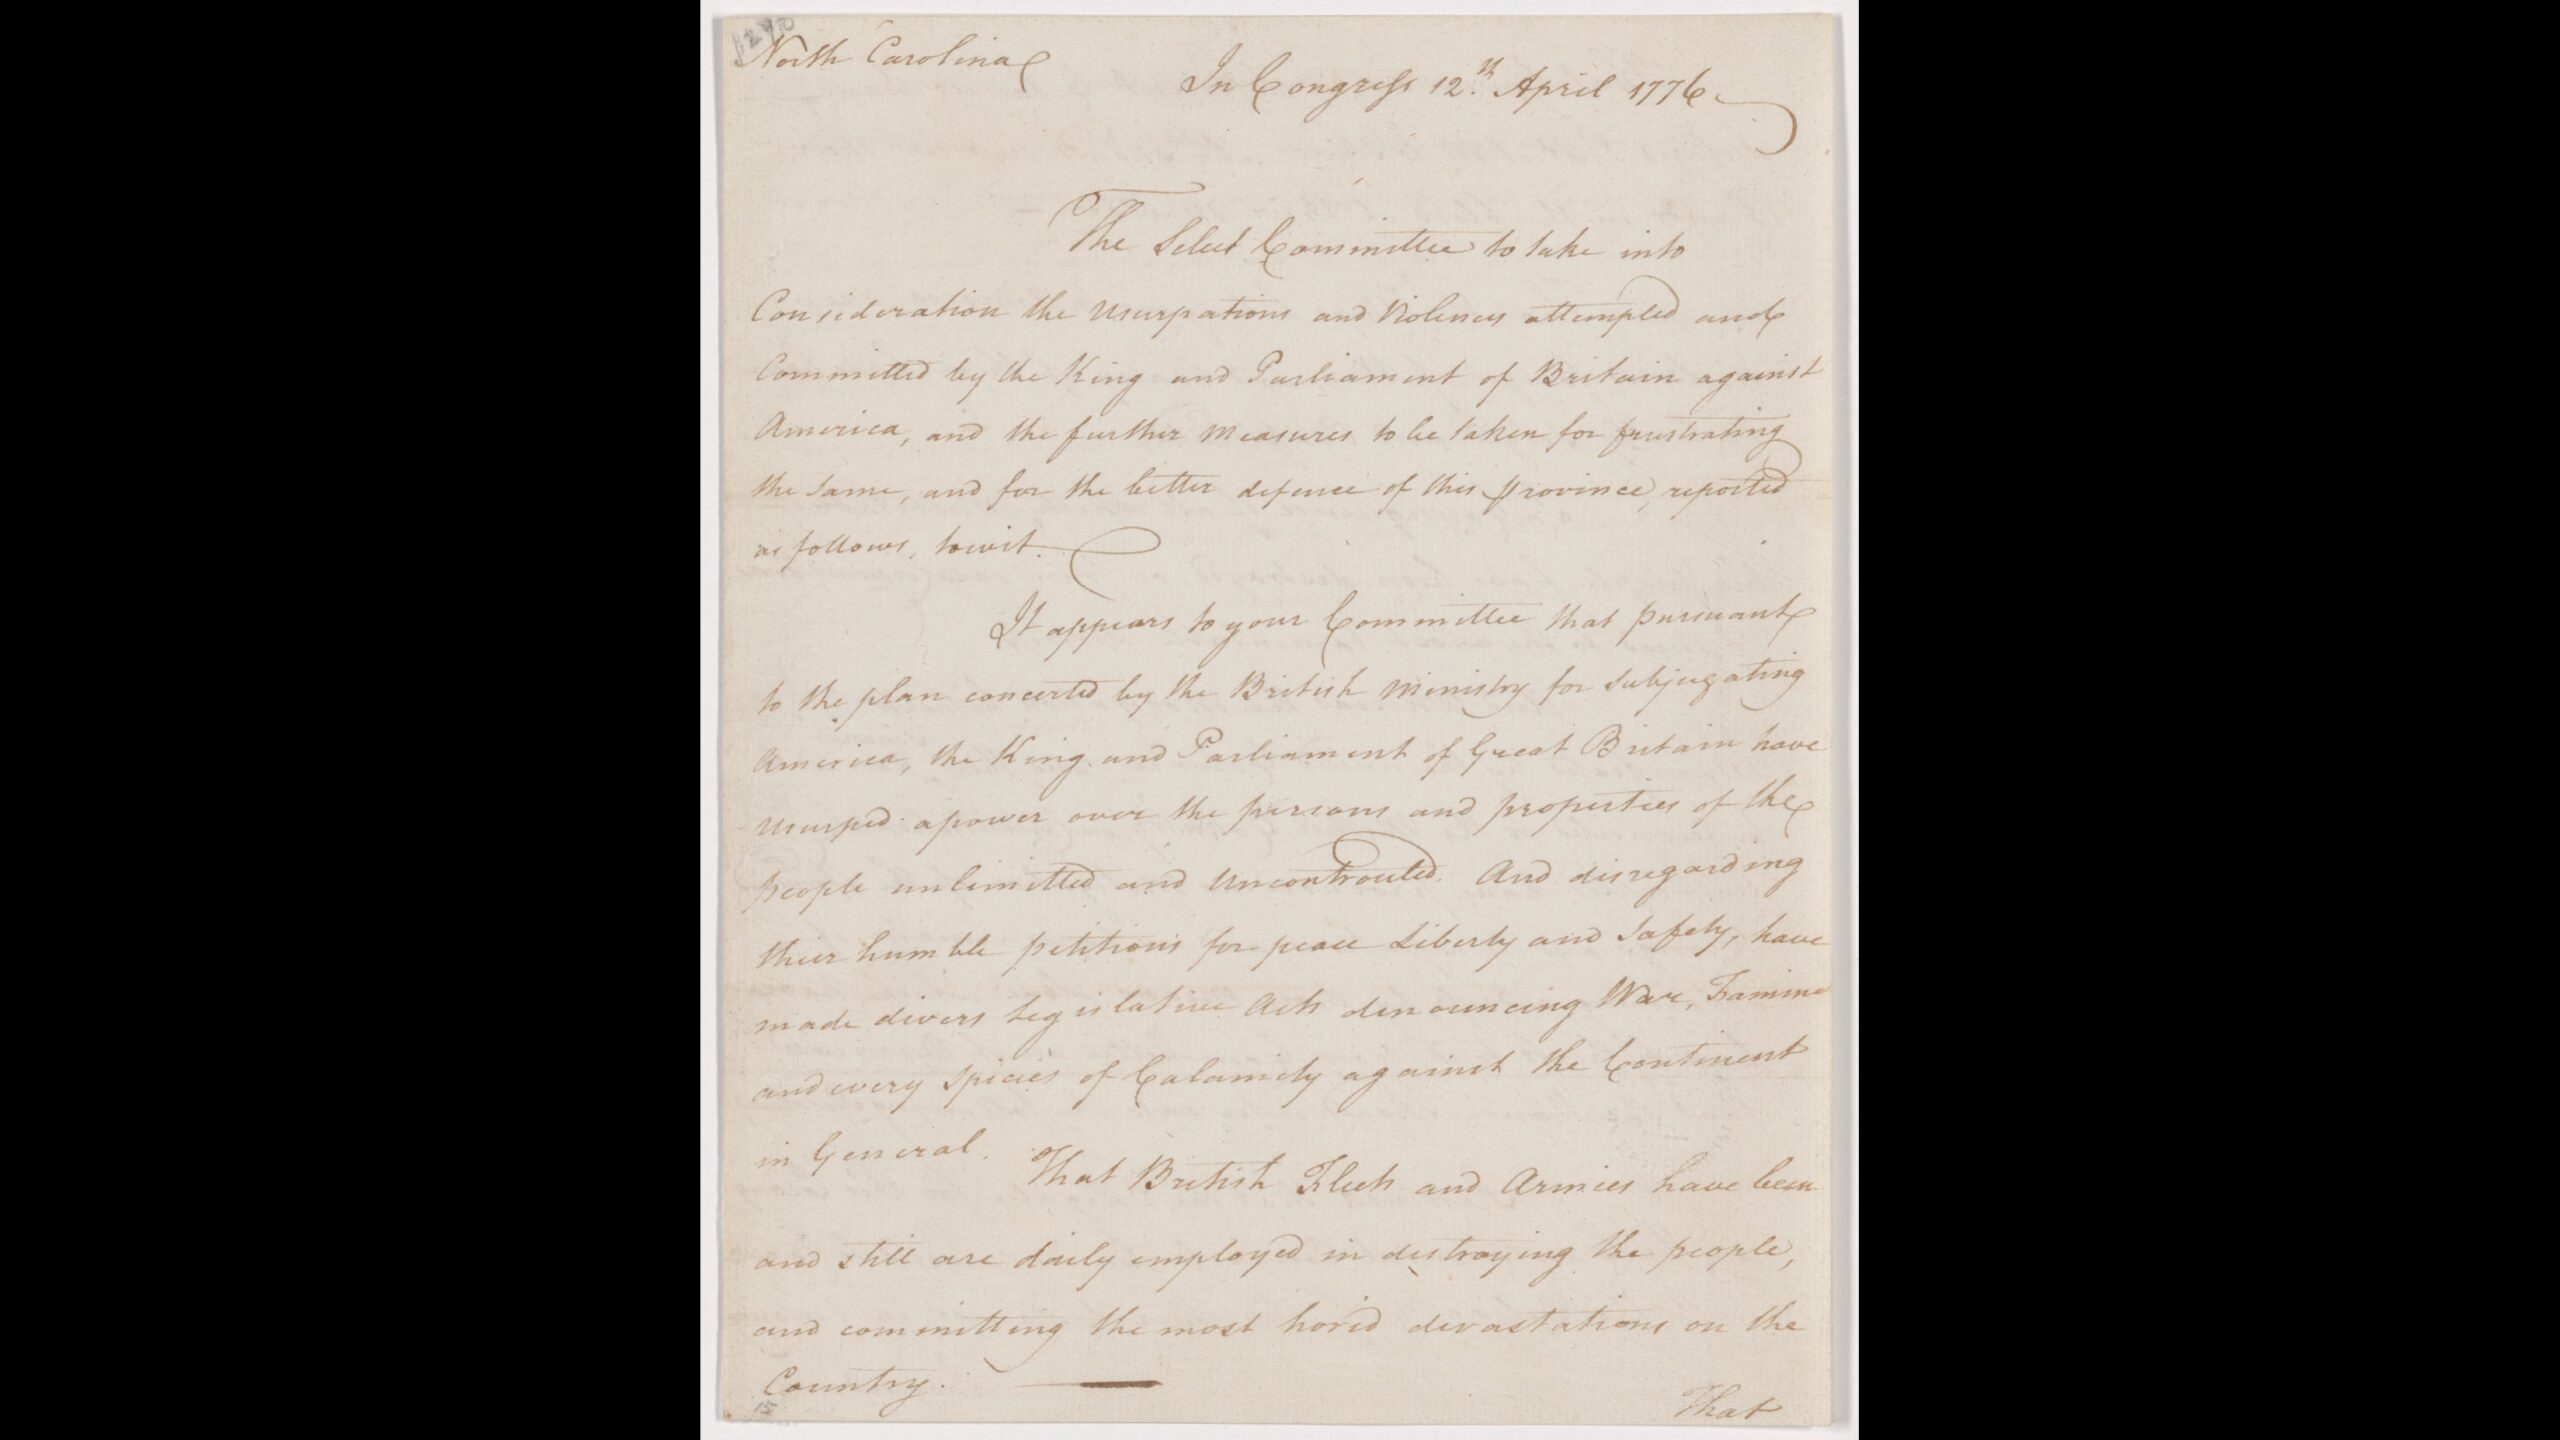 North Carolina
In Congress 12th. April 1776.
The Select Committee to take into
Consideration the Usurpations and Violences attempted and
Committed by the King and Parliament of Britain against
America, and the further Measures to be taken for frustrating
the same, and for the better defence of this province, reported
as follows, towit.
It appears to your Committee that pursuant
to the plan concerted by the British Ministry for subjugating
America, the King and Parliament of Great Britain have
usurped a power over the persons and properties of the
people unlimitted and uncontrouled. And disregarding
their humble petitions for peace Liberty and Safety, have
made divers Legislative Acts denouncing War, Famine
and every species of Calamity against the Continent
in General. That British Fleets and Armies have been
and still are daily employed in destroying the people,
and committing the most horid devastations on the
Country.
That
15